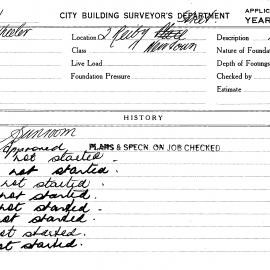 CITY BUILDING SURVEYOR'S DEPARTMENT
APPLIC
YEAR
Location 2 Reiby Street
Newtown
Class
Live Load
Foundation Pressure
Description
Nature of Foundat
Depth of Footings
Checked by
Estimate
HISTORY
Approved
PLANS & SPECN. ON JOB CHECKED
not started.
not started.
not started.
not started.
not started.
not started.
not started.
not started.